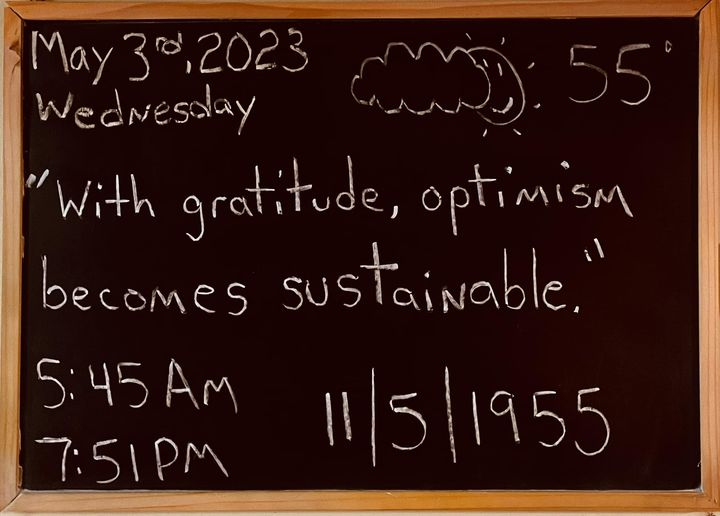 May 3rd, 2023
Wednesday
55°
"With gratitude, optimism
becomes sustainable."
5:45 AM
7:51 PM
11/5/1955